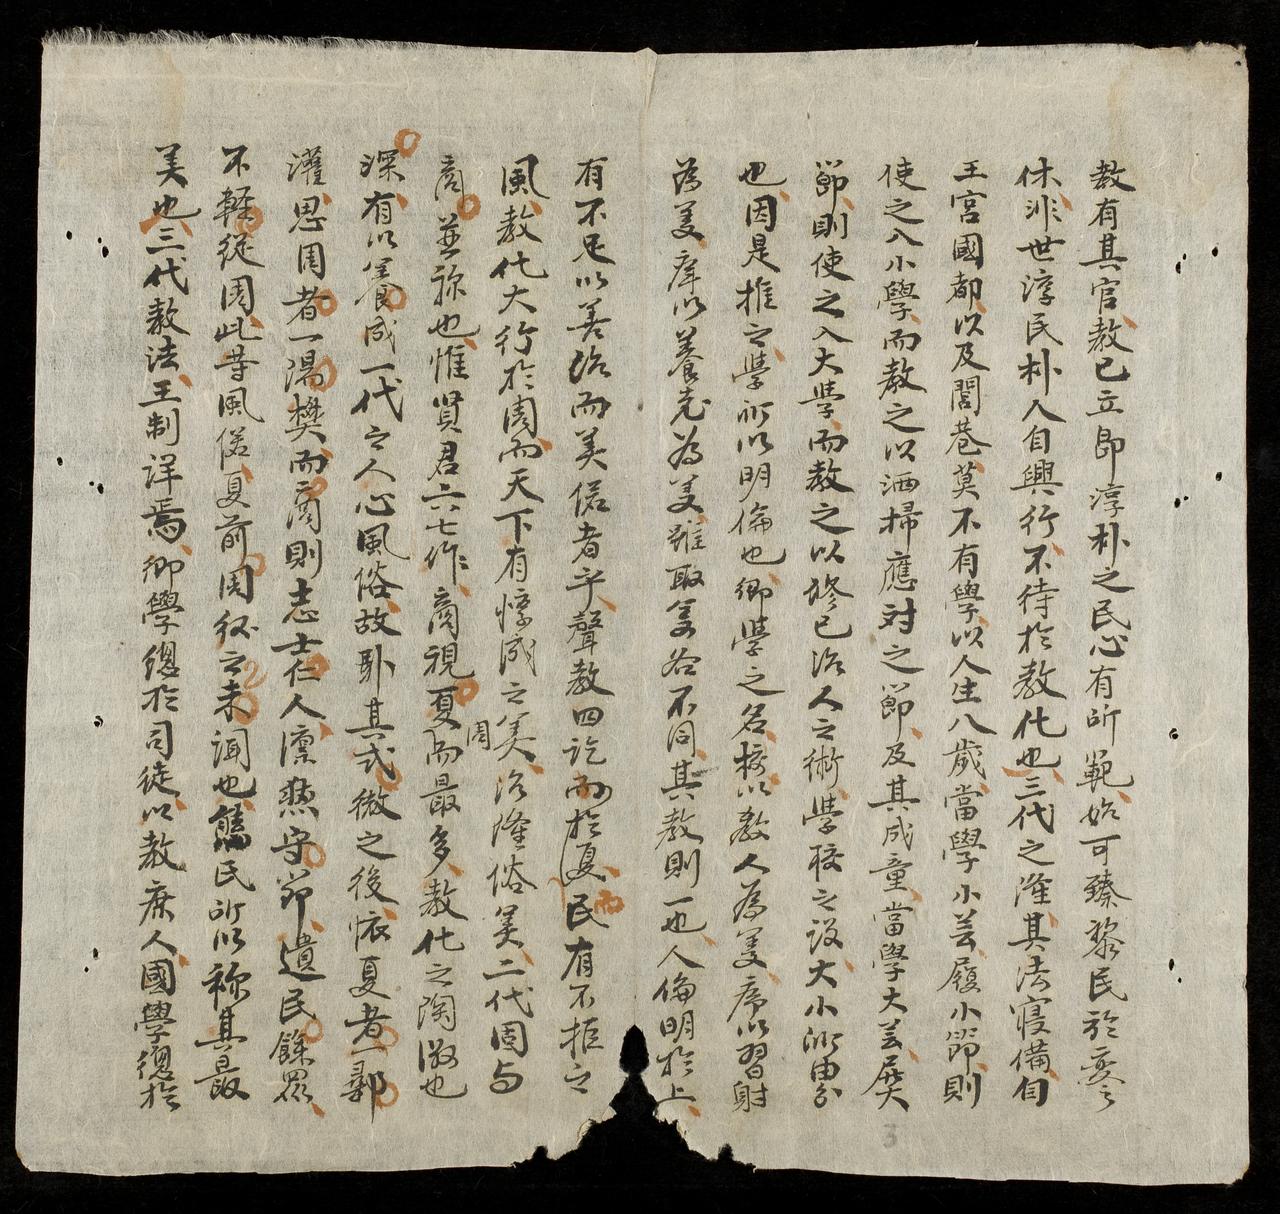 教有其官教已立即淳朴之民心有所範始可臻黎民於變之
休非世淳民朴人自興行不待於教化也三代之隆其法寖備自
王宮國都以及閭巷莫不有學以人生八歲當學小藝履小節則
使之入小學而教之以洒掃應对之節及其成童當學大藝履大
節則使之入大學而教之以修已治人之術學校之設大小所由分
也因是推之學所以明倫也鄉學之名校以教人為義序以習射
為義庠以養老為義雖取義各不同其教則一也人倫明於上
有不足以善治而美俗者乎聲教四訖而於夏民有不拒之
風教化大行於周而天下有惇成之美治隆俗美二代固与
商並称也惟賢君六七作商視夏周而最多教化之陶淑也
深有以養成一代之人心風俗故即其式微之後懷夏者一鄩
灌思周者一陽樊而商則志士仁人凛然守節遺民餘眾
不輕從周此等風俗夏前周後之未聞也舊民所以称其最
美也三代教法王制詳焉鄉學總於司徒以教庶人國學總於